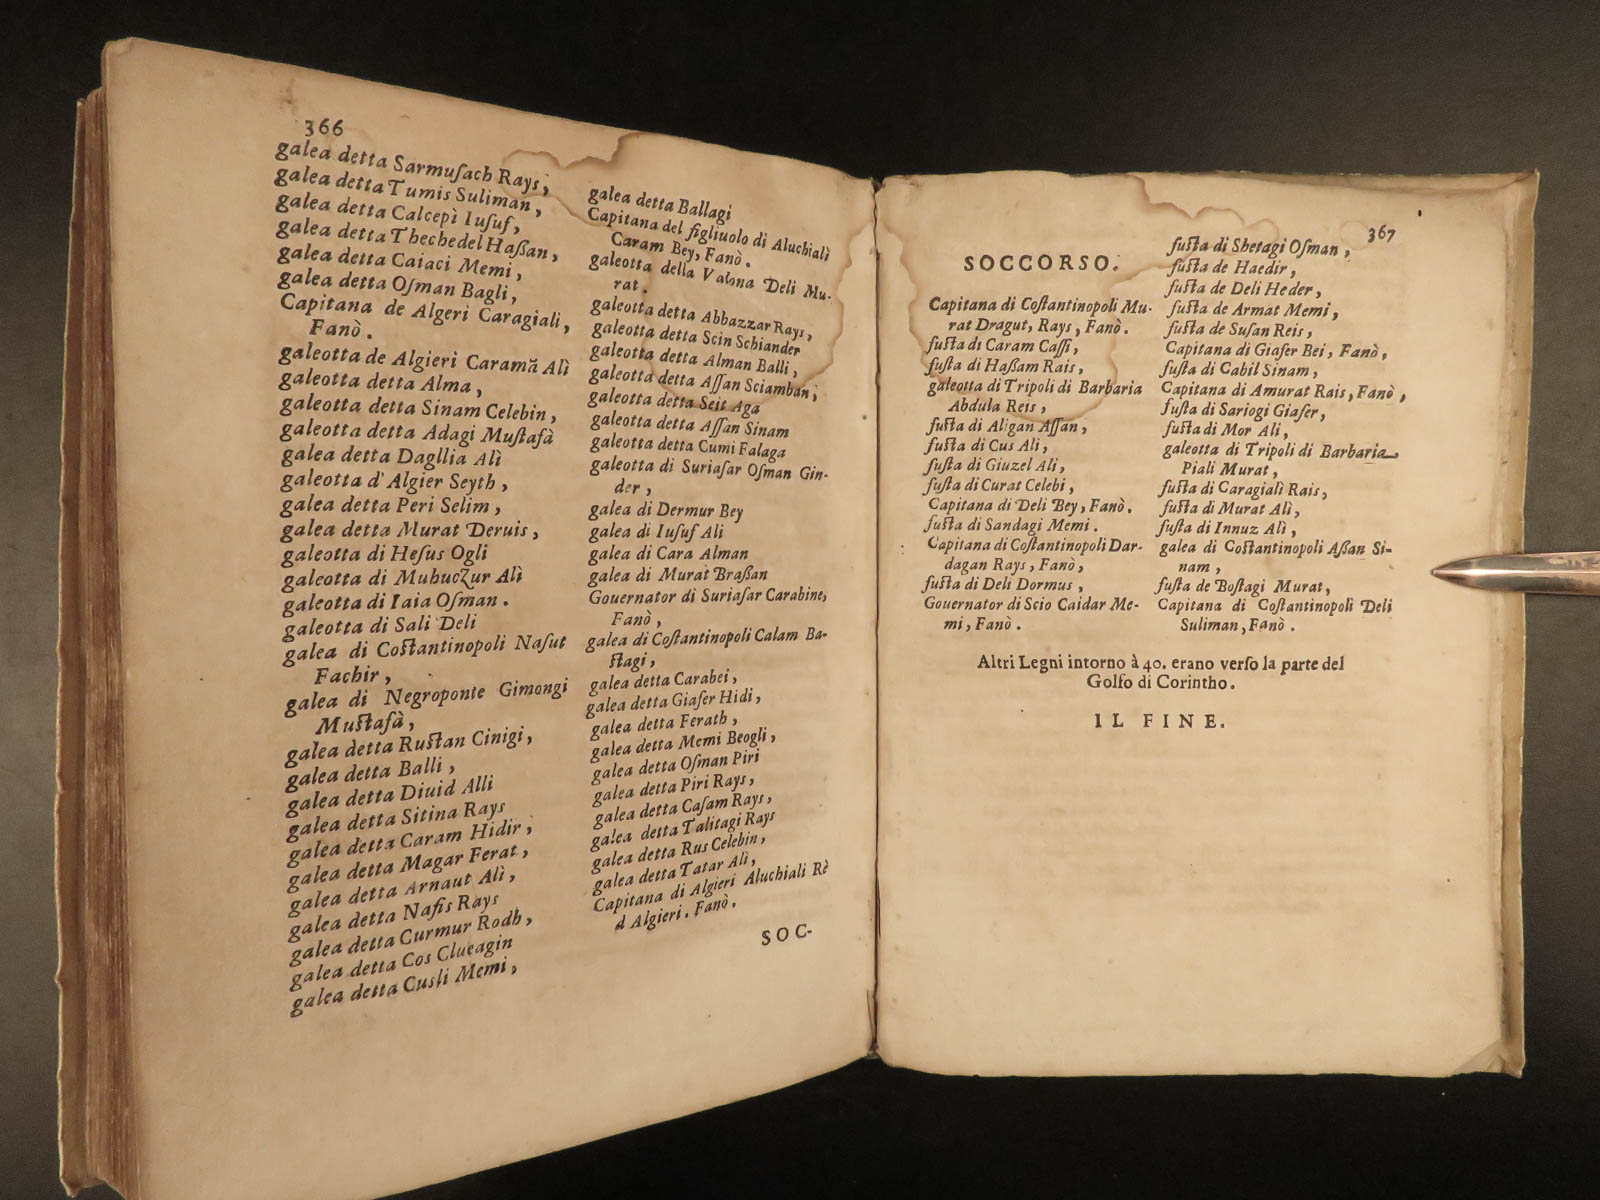 366
galea detta Sarmuſach Rays,
galea detta Tumis Suliman,
galea detta Calcepì Iuſuf,
galea detta Thechedel Haßan,
galea detta Caiaci Memi,
galea detta Oſman Bagli,
Capitana de Algeri Caragiali,
Fanò.
galeotta de Algieri Caramā Alì
galeotta detta Alma,
galeotta detta Sinam Celebin,
galeotta detta Adagi Muſtafà
galea detta Dagllia Alì
galeotta d'Algier Seyth,
galea detta Peri Selim,
galea detta Murat Deruis,
galeotta di Heſus Ogli
galeotta di Muhuczur Alì
galeotta di Iaia Oſman.
galeotta di Sali Deli
galea di Coſtantinopoli Naſut
Fachir,
galea di Negroponte Gimongi
Muſtafà,
galea detta Ruſtan Cinigi,
galea detta Balli,
galea detta Diuid Alli
galea detta Sitina Rays
galea detta Caram Hidir,
galea detta Magar Ferat,
galea detta Arnaut Alì,
galea detta Nafis Rays
galea detta Curmur Rodh,
galea detta Cos Clueagin
galea detta Cusli Memi,
galea detta Ballagi
Capitana del figliuolo di Aluchialì
Caram Bey, Fanò.
galeotta della Valona Deli Mu-
rat.
galeotta detta Abbazzar Rays,
galeotta detta Scin Schiander
galeotta detta Alman Balli,
galeotta detta Aſſan Sciamban,
galeotta detta Seit Aga
galeotta detta Aſſan Sinam
galeotta detta Cumi Falaga
galeotta di Suriaſar Oſman Gin-
der,
galea di Dermur Bey
galea di Iuſuf Ali
galea di Cara Alman
galea di Murat Braßan
Gouernator di Suriaſar Carabine,
Fanò,
galea di Coſtantinopoli Calam Ba-
ſtagi,
galea detta Carabei,
galea detta Giafer Hidi,
galea detta Ferath,
galea detta Memi Beogli,
galea detta Oſman Piri
galea detta Piri Rays,
galea detta Caſam Rays,
galea detta Talitagi Rays
galea detta Rus Celebin,
galea detta Tatar Alì,
Capitana di Algieri Aluchiali Rè
d Algieri. Fanò.
SOC-
367
SOCCORSO.
Capitana di Coſtantinopoli Mu-
rat Dragut, Rays, Fanò.
fuſta di Caram Caſſi,
fuſta di Haßam Rais,
galeotta di Tripoli di Barbaria
Abdula Reis,
fuſta di Aligan Aſſan,
fuſta di Cus Ali,
fuſta di Giuzel Ali,
fuſta di Curat Celebi,
Capitana di Deli Bey, Fanò.
fuſta di Sandagi Memi.
Capitana di Coſtantinopoli Dar-
dagan Rays, Fanò,
fuſta di Deli Dormus,
Gouernator di Scio Caidar Me-
mi, Fanò.
fuſta di Shetagi Oſman,
fuſta de Haedir,
fuſta de Deli Heder,
fuſta de Armat Memi,
fuſta de Suſan Reis,
Capitana di Giafer Bei, Fanò,
fuſta di Cabil Sinam,
Capitana di Amurat Rais, Fanò,
fuſta di Sariogi Giafer,
fuſta di Mor Ali,
galeotta di Tripoli di Barbaria
Piali Murat,
fuſta di Caragialì Rais,
fuſta di Murat Alì,
fuſta di Innuz Alì,
galea di Coſtantinopoli Aßan Si-
nam,
fuſta de Boſtagi Murat,
Capitana di Coſtantinopoli Deli
Suliman, Fanò.
Altri Legni intorno à 40. erano verſo la parte del
Golfo di Corintho.
IL FINE.